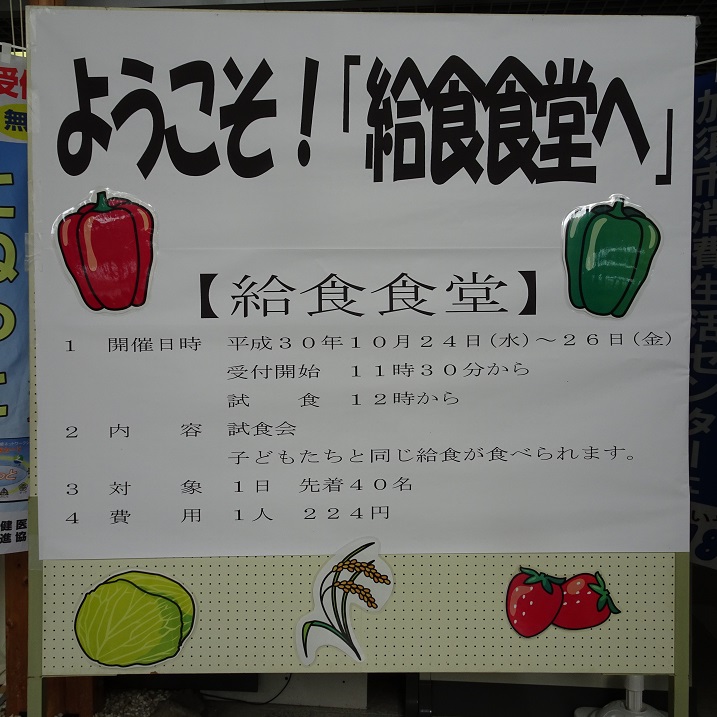 ようこそ！「給食食堂へ」
【給食食堂】
１　開催日時　平成３０年１０月２４日(水)～２６日(金)
受付開始　１１時３０分から
試　　食　１２時から
２　内　　容　試食会
子どもたちと同じ給食が食べられます。
３　対　　象　１日　先着４０名
４　費　　用　１人　２２４円
加須市消費生活センター